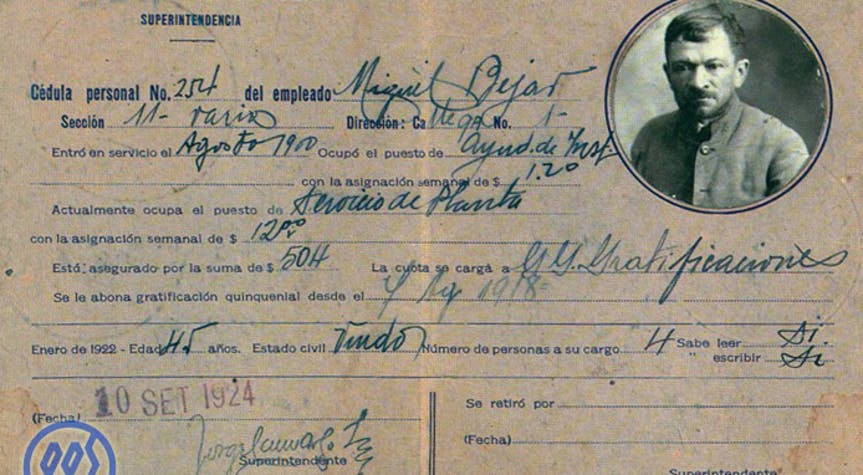 SUPERINTENDENCIA
Cédula personal No. 254 del empleado Miguel Bejar
Sección 11- varios Dirección: Ca Vega No. 1-
Entró en servicio el Agosto 1900 Ocupó el puesto de Ayud. de
con la asignación semanal de $ 1.20
Actualmente ocupa el puesto de Servicio de Planta
con la asignación semanal de $ 12.00
Está asegurado por la suma de $ 504 La cuota se carga a G.G. Gratificaciones
Se le abona gratificación quinquenial desde el 7 Ag 1918
Enero de 1922 - Edad 45 años. Estado civil Viudo Número de personas a su cargo 4 Sabe leer Si
" escribir Si
10 SET 1924
Se retiró por
(Fecha)
(Fecha)
Superintendente
Superintendente